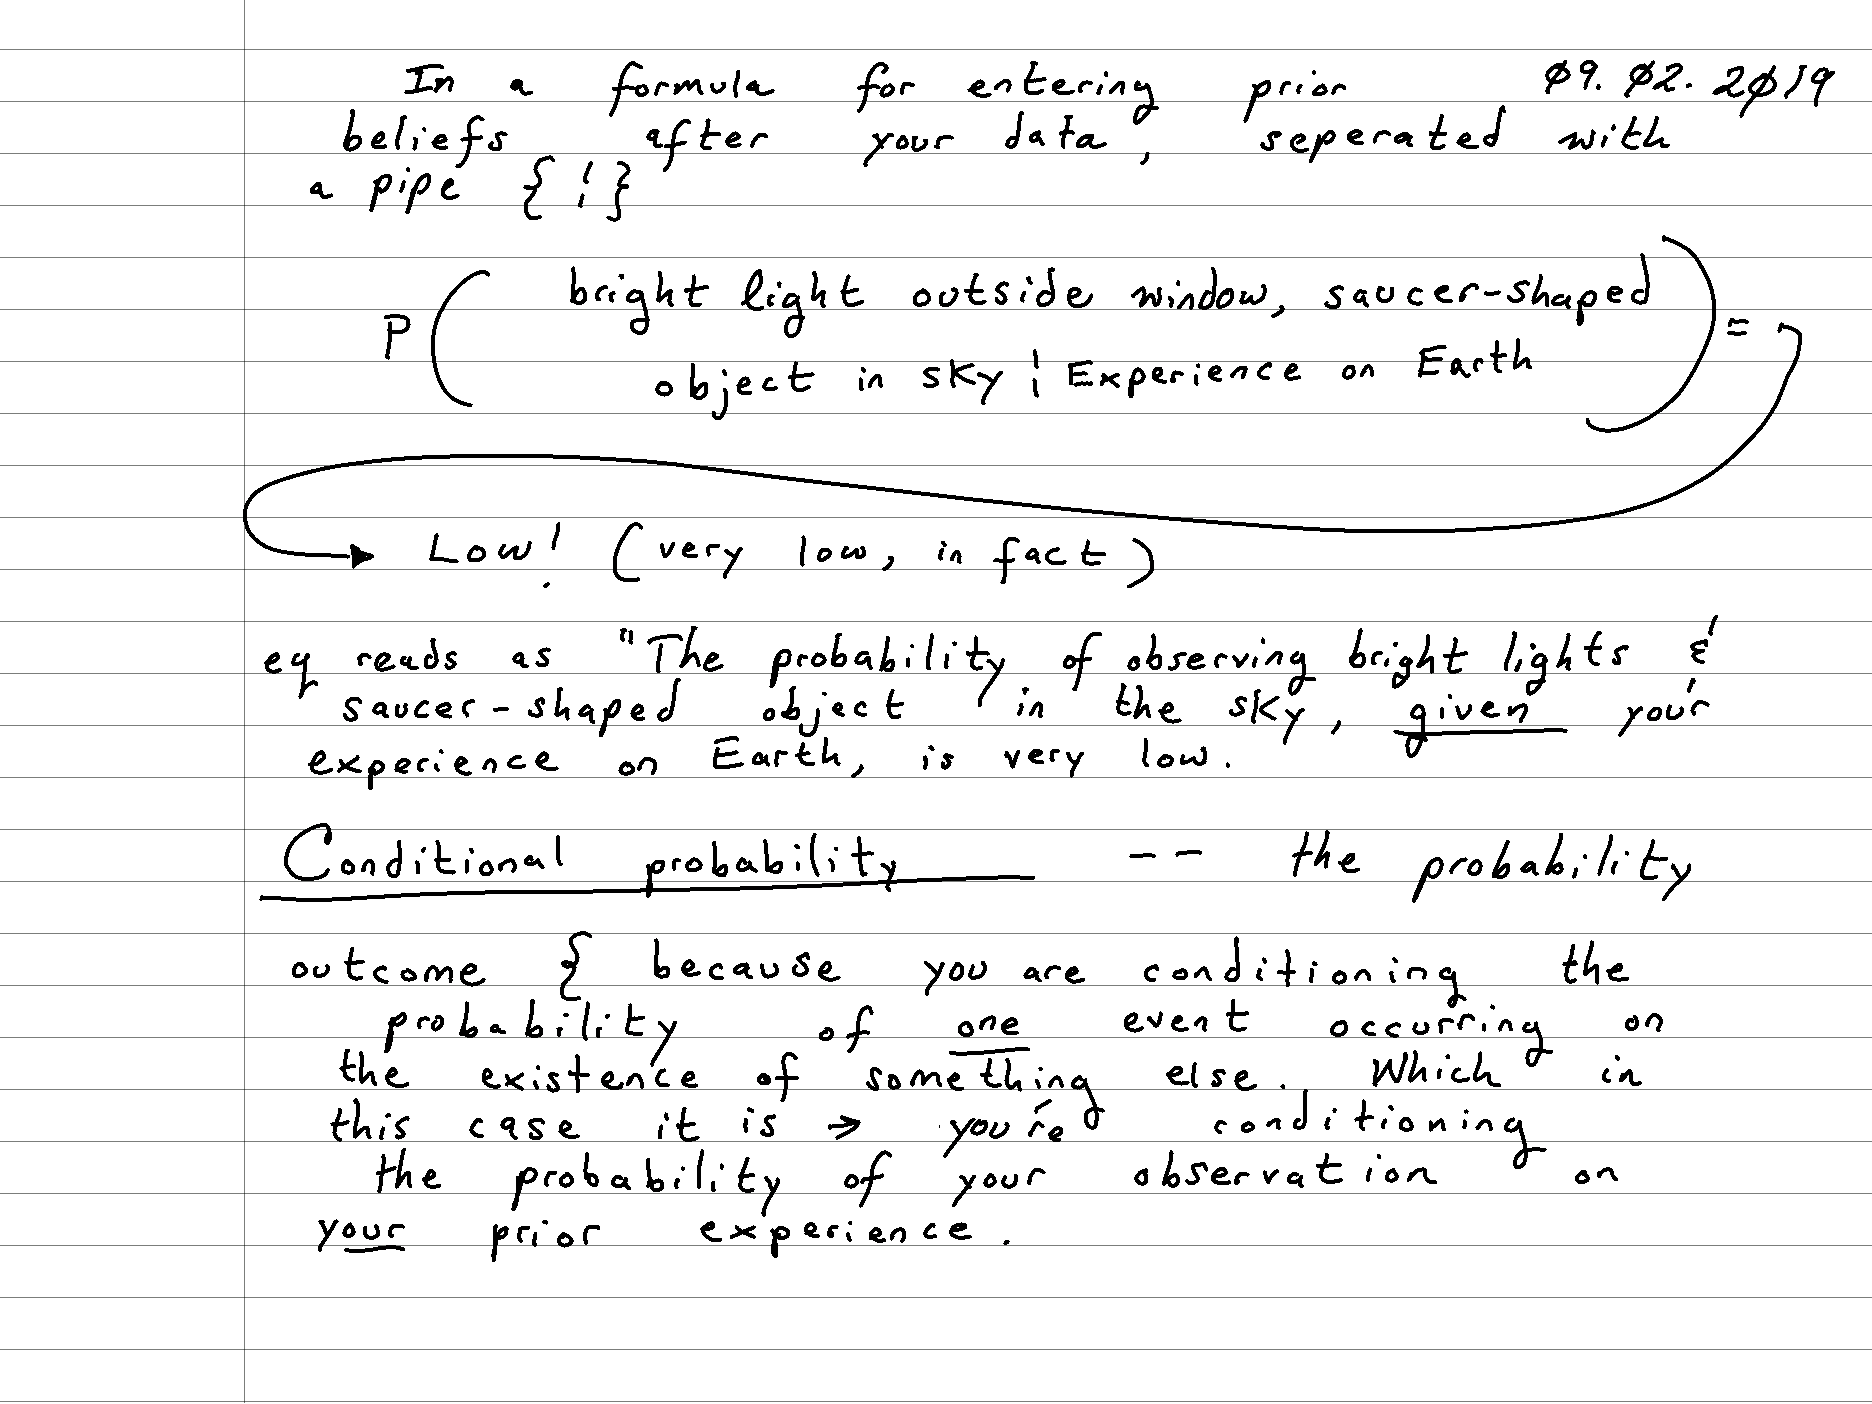 In a formula for entering prior ø9. ø2. 2ø19
beliefs after your data, seperated with
a pipe { ¦ }
bright light outside window, saucer-shaped
P ( ) =
object in sky ¦ Experience on Earth
Low! (very low, in fact)
eq reads as "The probability of observing bright lights &
saucer-shaped object in the sky, given your
experience on Earth, is very low.
Conditional probability -- the probability
outcome { because you are conditioning the
probability of one event occurring on
the existence of something else. Which in
this case it is → you're conditioning
the probability of your observation on
your prior experience.